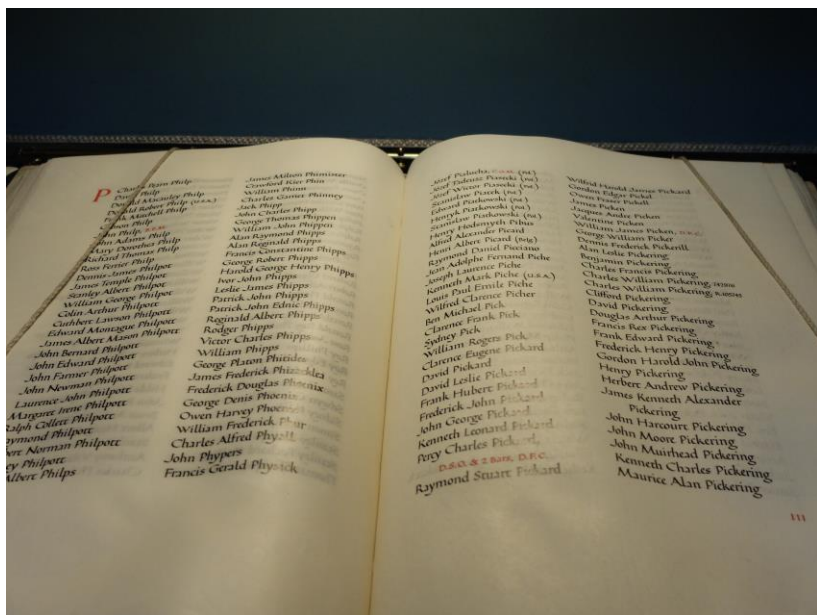 P
Philp
David Philp
Donald Macauley Philp
Donald Robert Philp (U.S.A.)
Frank Machell Philp
Philp
John Philp,
John Adams Philp
Mary Dorothea Philp
Richard Thomas Philp
Ross Ferrier Philp
Dennis James Philpot
James Temple Philpot
Stanley Albert Philpot
William George Philpot
Colin Arthur Philpott
Cuthbert Lawson Philpott
Edward Montague Philpott
James Albert Mason Philpott
John Bernard Philpott
John Edward Philpott
John Farmer Philpott
John Newman Philpott
Laurence John Philpott
Margaret Irene Philpott
Ralph Collett Philpott
Raymond Philpott
Norman Philpott
Philpott
Albert Philps
James Milson Phimister
Crawford Kier Phin
William Phinn
Charles Garner Phinney
Jack Phipp
John Charles Phipp
George Thomas Phippen
William John Phippen
Alan Raymond Phipps
Alan Reginald Phipps
Francis Constantine Phipps
George Robert Phipps
Harold George Henry Phipps
Ivor John Phipps
Leslie James Phipps
Patrick John Phipps
Patrick John Ednic Phipps
Reginald Albert Phipps
Rodger Phipps
Victor Charles Phipps
William Phipps
George Platon Phitides
James Frederick Phizacklea
Frederick Douglas Phoenix
George Denis Phoenix
Owen Harvey Phoenix
William Frederick Phur
Charles Alfred Phyall
John Phypers
Francis Gerald Physick
Józef Palucha, (P.E.)
Józef Tadeusz Piasecki (P.E.)
Józef Victor Piasecki (P.E.)
Stanisław Piasek (P.E.)
Edward Piatkowski (P.E.)
Henryk Piatkowski (P.E.)
Stanisław Piatkowski (P.E.)
Henry Pibus
Alfred Alexander Picard
Henri Albert Picard (Belg)
Raymond Daniel Picciano
Jean Adolphe Fernand Piche
Joseph Laurence Piche
Kenneth Mark Piche (U.S.A.)
Louis Paul Emile Piche
Wilfred Clarence Picher
Ben Michael Pick
Clarence Frank Pick
Sydney Pick
William Rogers Pick
Clarence Eugene Pickard
David Pickard
David Leslie Pickard
Frank Hubert Pickard
Frederick John Pickard
John George Pickard
Kenneth Leonard Pickard
Percy Charles Pickard,
D.S.O. & 2 Bars, D.F.C.
Raymond Stuart Pickard
Wilfrid Harold James Pickard
Gordon Edgar Pickel
Owen Fraser Pickell
James Picken
Jacques Andre Picken
Valentine Picken
William James Picken, D.F.C.
George William Picker
Dennis Frederick Pickerill
Alan Leslie Pickering
Benjamin Pickering
Charles Francis Pickering
Charles William Pickering,
Charles William Pickering,
Clifford Pickering
David Pickering
Douglas Arthur Pickering
Francis Rex Pickering
Frank Edward Pickering
Frederick Henry Pickering
Gordon Harold John Pickering
Henry Pickering
Herbert Andrew Pickering
James Kenneth Alexander
Pickering
John Harcourt Pickering
John Moore Pickering
John Muirhead Pickering
Kenneth Charles Pickering
Maurice Alan Pickering
111